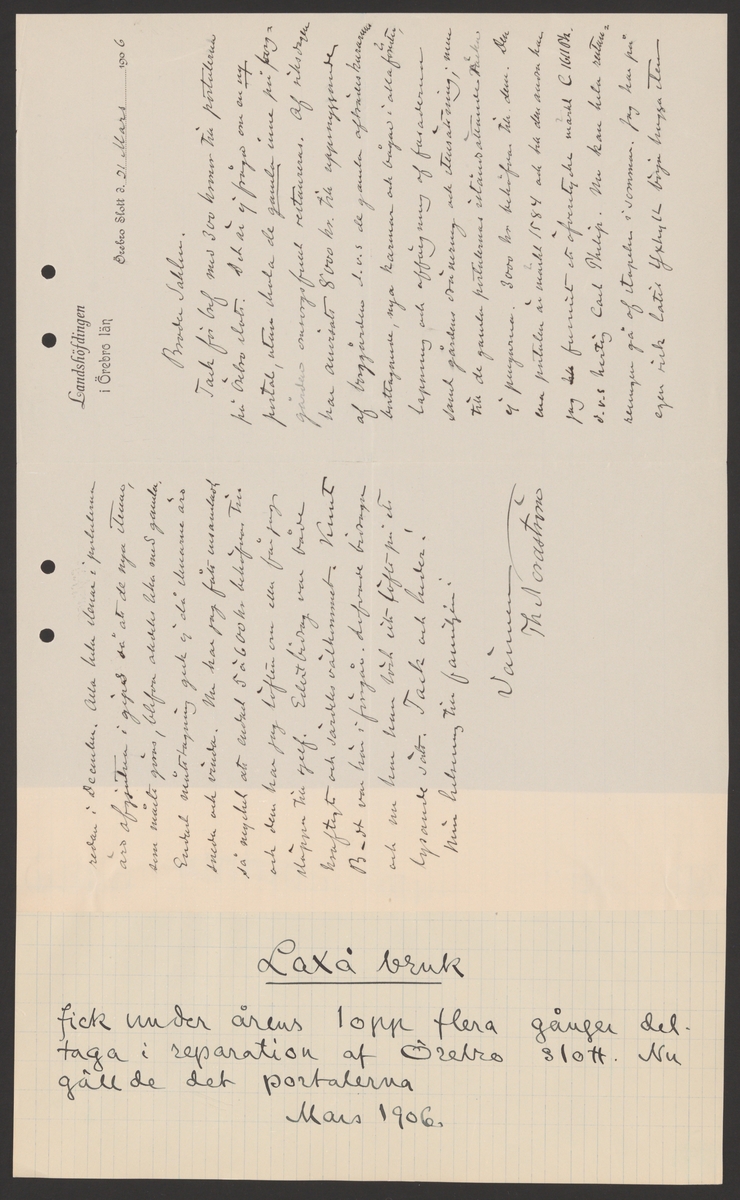 Landshöfdingen
i Örebro län
Örebro Slott d. 21 Mars 1906
Broder Sahlin.
Tack för bref med 300 kronor till portalerna
på Örebro slott. Det är ej fråga om en ny
portal, utan skola de gamla inne på borg-
gården omsorgsfullt restaureras. Af riksdagen
har anvisats 8000 kr. till uppsnyggande
af borggården d.v.s. de gamla
borttagande, nya karmar och bågar i alla fönster,
lappning och affärgning af fasaderna
samt gårdens dränering och stensättning, men
till de gamla portalernas iståndsättande räcka
ej pengarna. 3000 kr behöfvas till dem. Den
ena portalen är märkt 1584 och till den andra har
jag funnit ett öfverstycke märkt
d.v.s. hertig Carl Philip. Nu kan hela restau-
reringen gå af stapeln i sommar. Jag har på
egen risk låtit Yxhult börja hugga sten
redan i December. Alla hela stenar i portalerna
äro så att de nya stenar,
som måste göras, blifva alldeles lika med gamla.
Endast måttagning gick ej då stenarne äro
sneda och vinda. Nu har jag fått insamladt
så mycket att endast 5 à 600 kr behöfvas till
och dem har jag löften om eller får jag
släppa till sjelf. Edert bidrag var både
kräftigt och särdeles välkommet. Knut
B–dt var här i förgår. lofvade bidraga
och nu har han löst sitt löfte på ett
lysande sätt. Tack och heder!
Min helsning till familjen!
Vännen
Th Nordström
Laxå bruk
fick under årens lopp flera gånger del-
taga i reparation af Örebro slott. Nu
gällde det portalerna
Mars 1906.